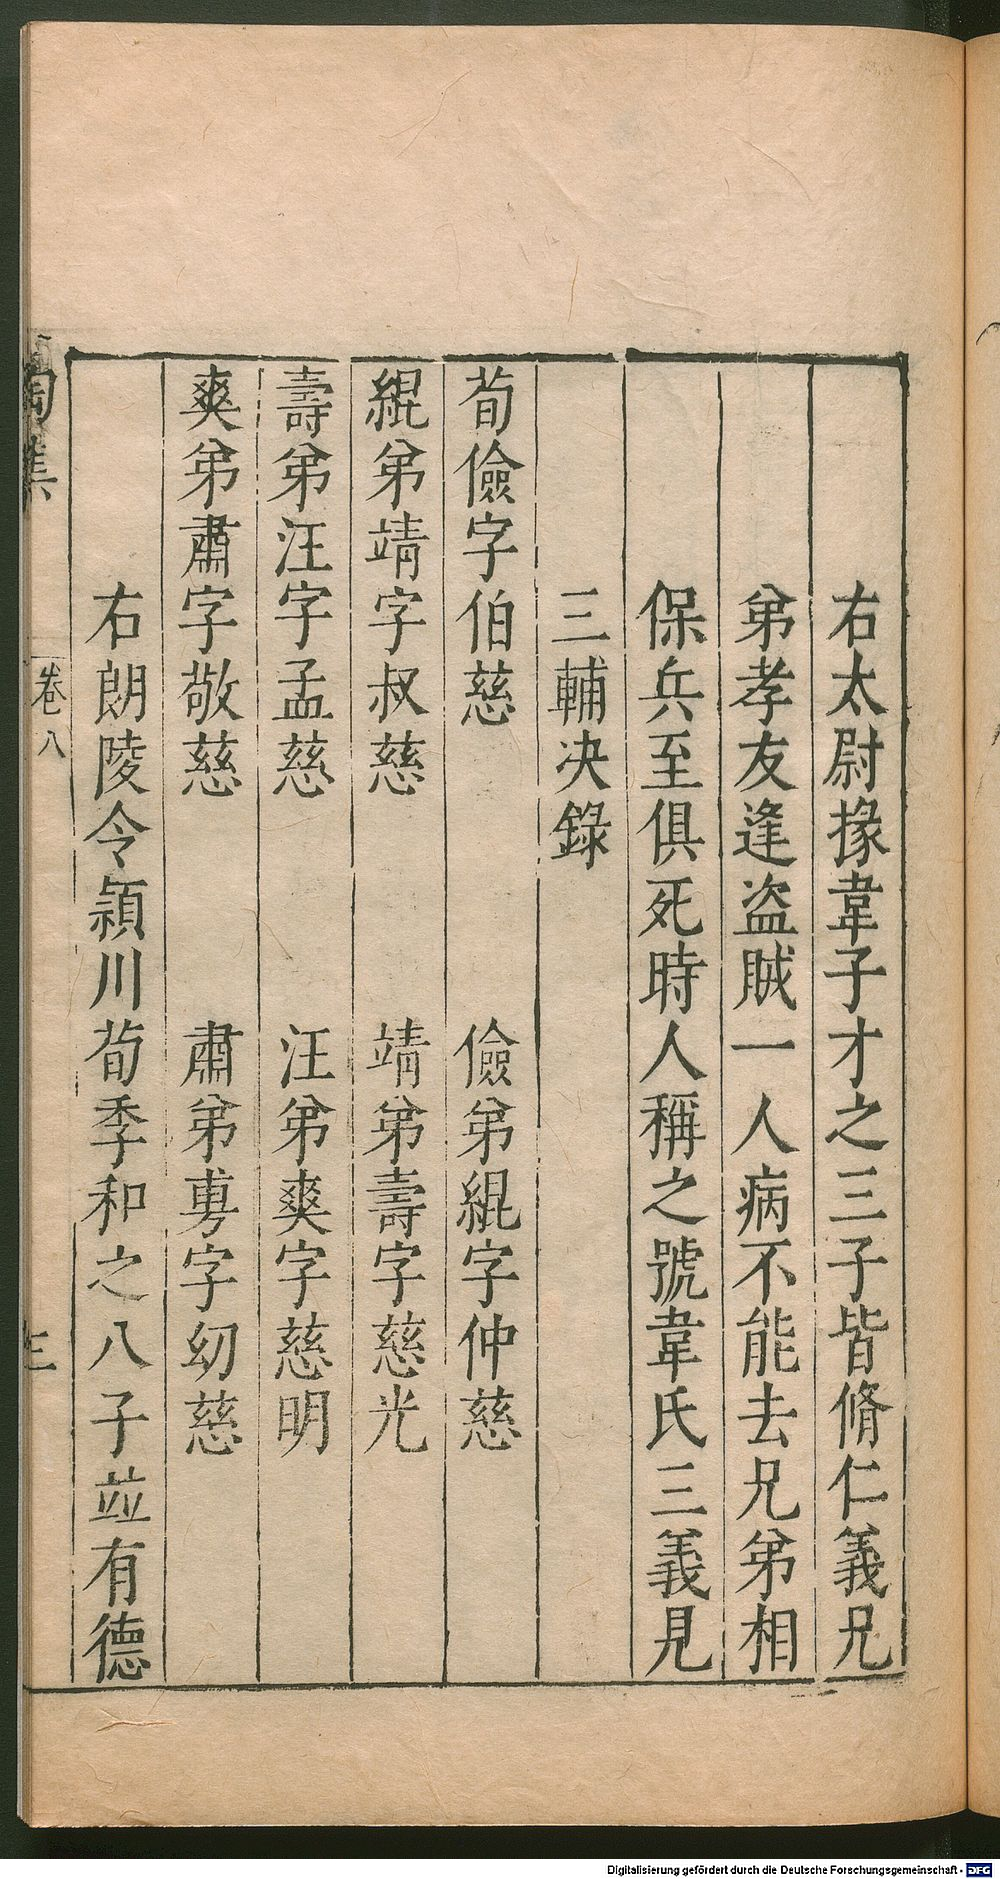 右太尉掾韋子才之三子皆脩仁義兄
弟孝友逢盜賊一人病不能去兄弟相
保兵至俱死時人稱之號韋氏三義見
三輔决錄
荀儉字伯慈　儉弟緄字仲慈
緄弟靖字叔慈　靖弟壽字慈光
壽弟汪字孟慈　汪弟爽字慈明
爽弟肅字敬慈　肅弟旉字幼慈
右朗陵令潁川荀季和之八子並有德
陶集
卷八
Digitalisierung gefördert durch die Deutsche Forschungsgemeinschaft - DFG